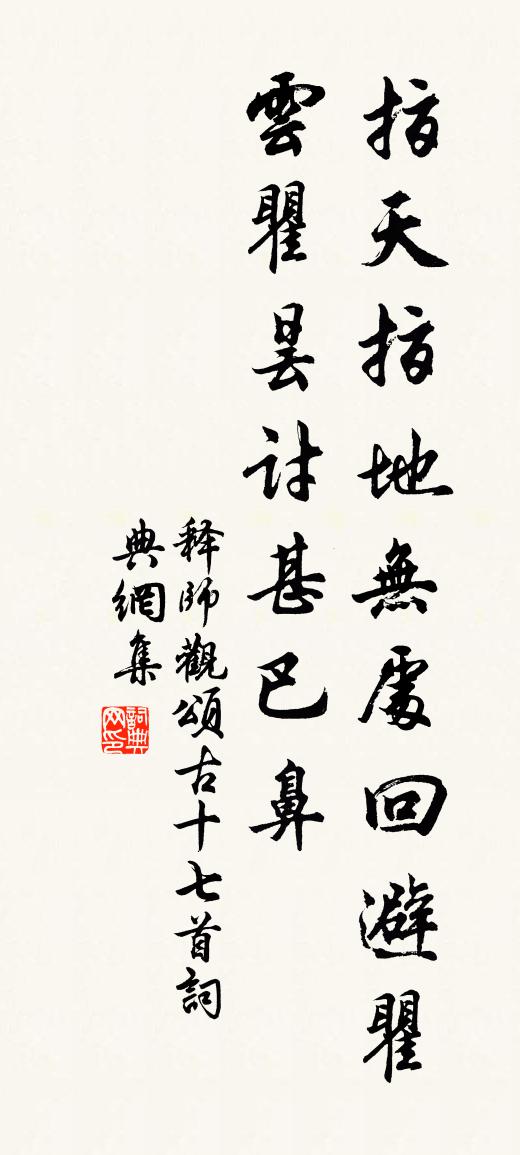 指天指地無處回避瞿
雲瞿曇討甚巴鼻
释師觀頌古十七首詞
典網集
詞典网印